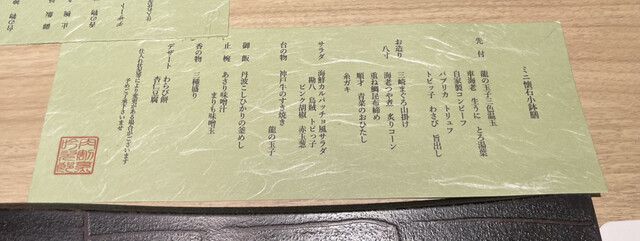 ミニ懐石小鉢膳
先付
龍の玉子三色温玉
車海老 生うに とろ湯葉
自家製コンビーフ
パプリカ トリュフ
トピッ子 わさび 旨出し
お造り
三崎まぐろ山掛け
八寸
海老つや煮 炙りコーン
重ね鯛昆布締め
順才 青菜のおひたし
糸ガキ
サラダ
海鮮カルパッチョ風サラダ
勘八 烏賊 トピっ子
ピンク胡椒 赤玉葱
台の物
神戸牛のすき焼き
龍の玉子
御飯
丹波こしひかりの釜めし
止椀
あさり味噌汁
まりも味噌玉
香の物
三種盛り
デザート
わらび餅
杏仁豆腐
仕入れ状況等により変更がある場合がございます
予めご了承下さいませ
台の物
止椀
御飯
香の物
デザート